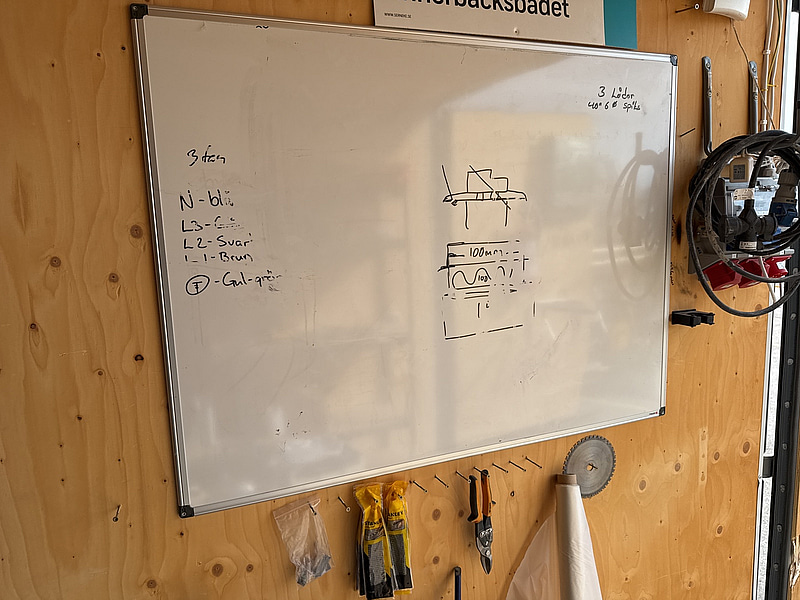 nerbäcksbadet
3 Lådor
40° 6 ø spik
3 fas
N - blå
L3 -
L2 - Svart
L1 - Brun
- Gul-grön
100mm
100